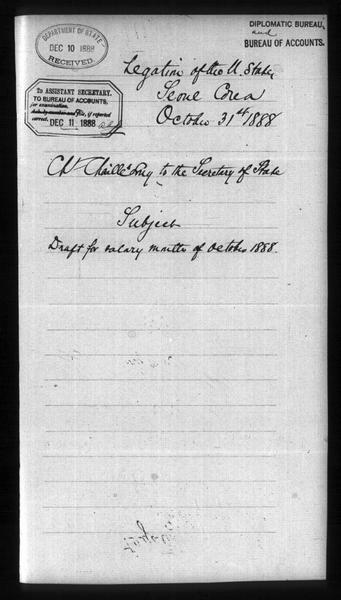 DEPARTMENT OF STATE
DEC 10 1888
RECEIVED.
DIPLOMATIC BUREAU,
and
BUREAU OF ACCOUNTS.
TO ASSISTANT SECRETARY,
TO BUREAU OF ACCOUNTS,
for examination,
if reported
correct.
DEC 11 1888
Legation of the U. States
Seoul Corea
October 31st 1888
Ch. Chaillé Long to the Secretary of State
Subject
Draft for salary month of October 1888.